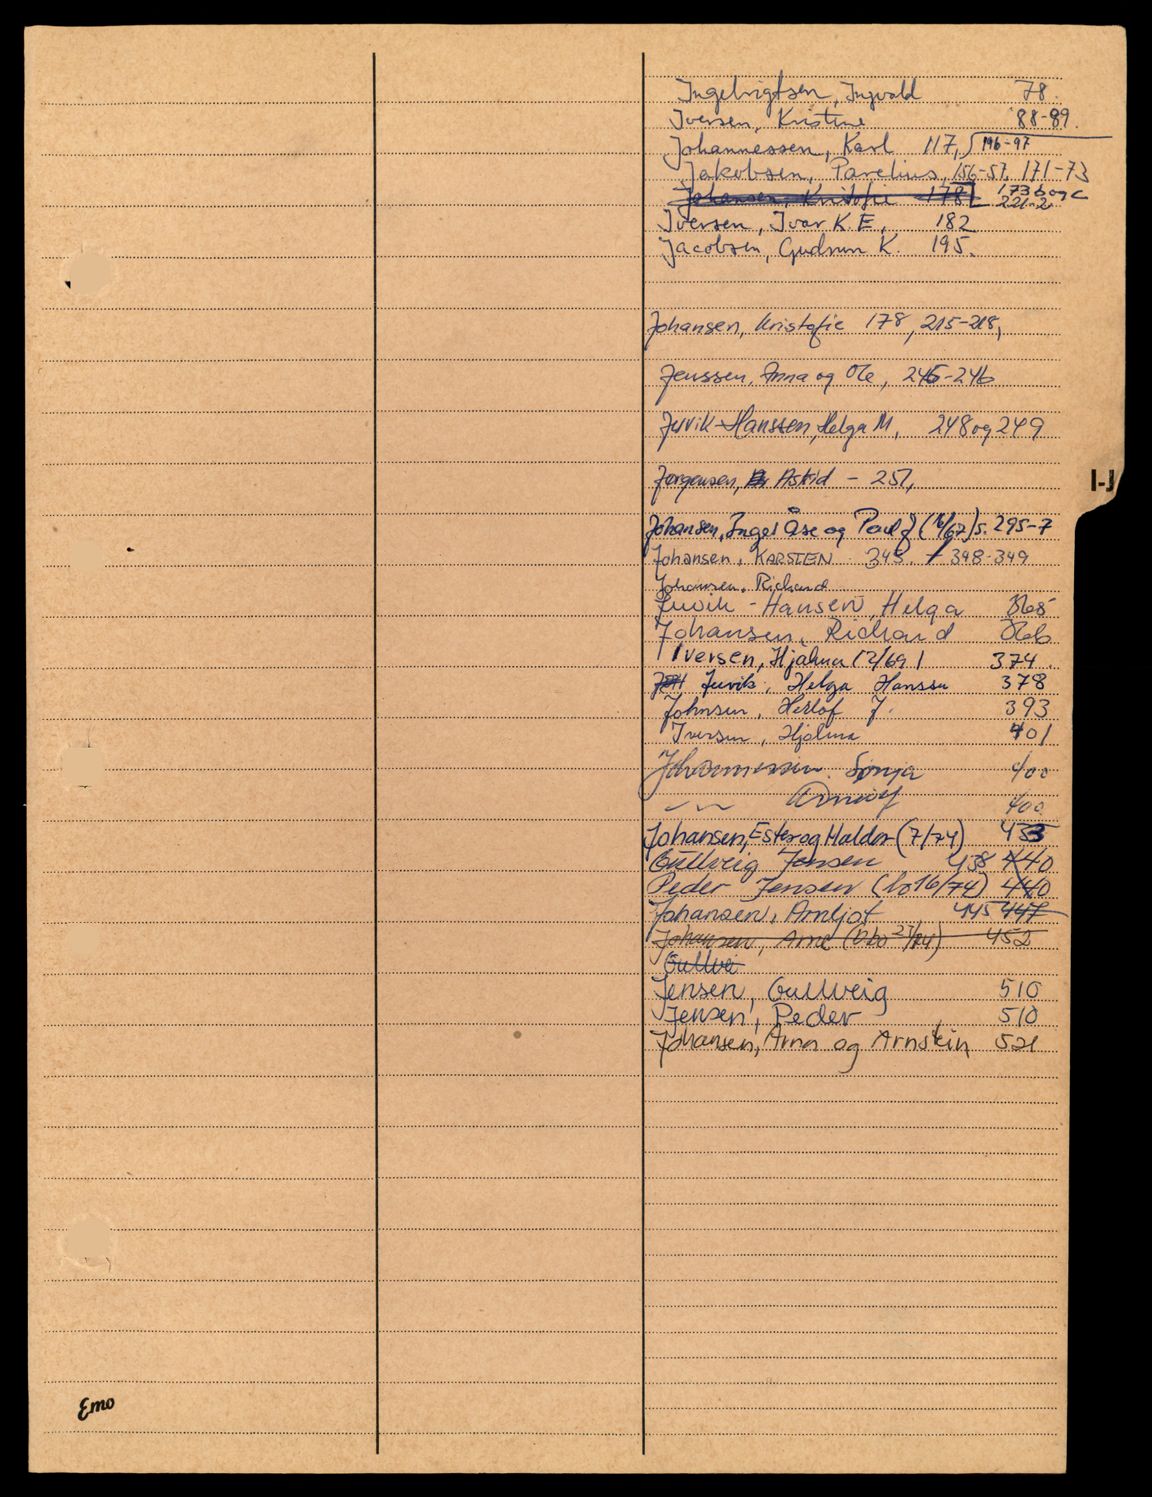 Ingebrigtsen, Ingvald 78.
Iversen, Kristine 88-89.
Johannessen, Karl 117, 196-97
Jakobsen, Parelius, 156-57, 171-73
173b og c
Johansen, Kristofie 178 221-2
Iversen, Ivar K.E, 182
Jacobsen, Gudrun K. 195.
Johansen, Kristofie 178, 215-218,
Jenssen, Anna og Ole, 245-246
Juvik-Hanssen, Helga M, 248 og 249
I-J
Jørgensen, Astrid - 251,
Johansen, Inger Åse og Paul J (/67) s. 295-7
Johansen, KARSTEN 343 348-349
Johansen, Richard
Juvik-Hansen, Helga 365
Johansen, Richard 366
Iversen, Hjalmar (2/69) 374.
Juvik, Helga Hanssen 378
Johnsen, Herlof J. 393
Iversen, Hjalmar 401
Johannessen. Sonja 400
400
Johansen, Ester og Haldor (7/74) 453
Gullveig Jensen 438 440
Peder Jensen (16/74) 440
Johansen, Arnljot 445 447
Johansen, Arne 452
Gullve
Jensen, Gullveig 510
Jensen, Peder 510
Johansen, Ann og Arnstein 521
Emo